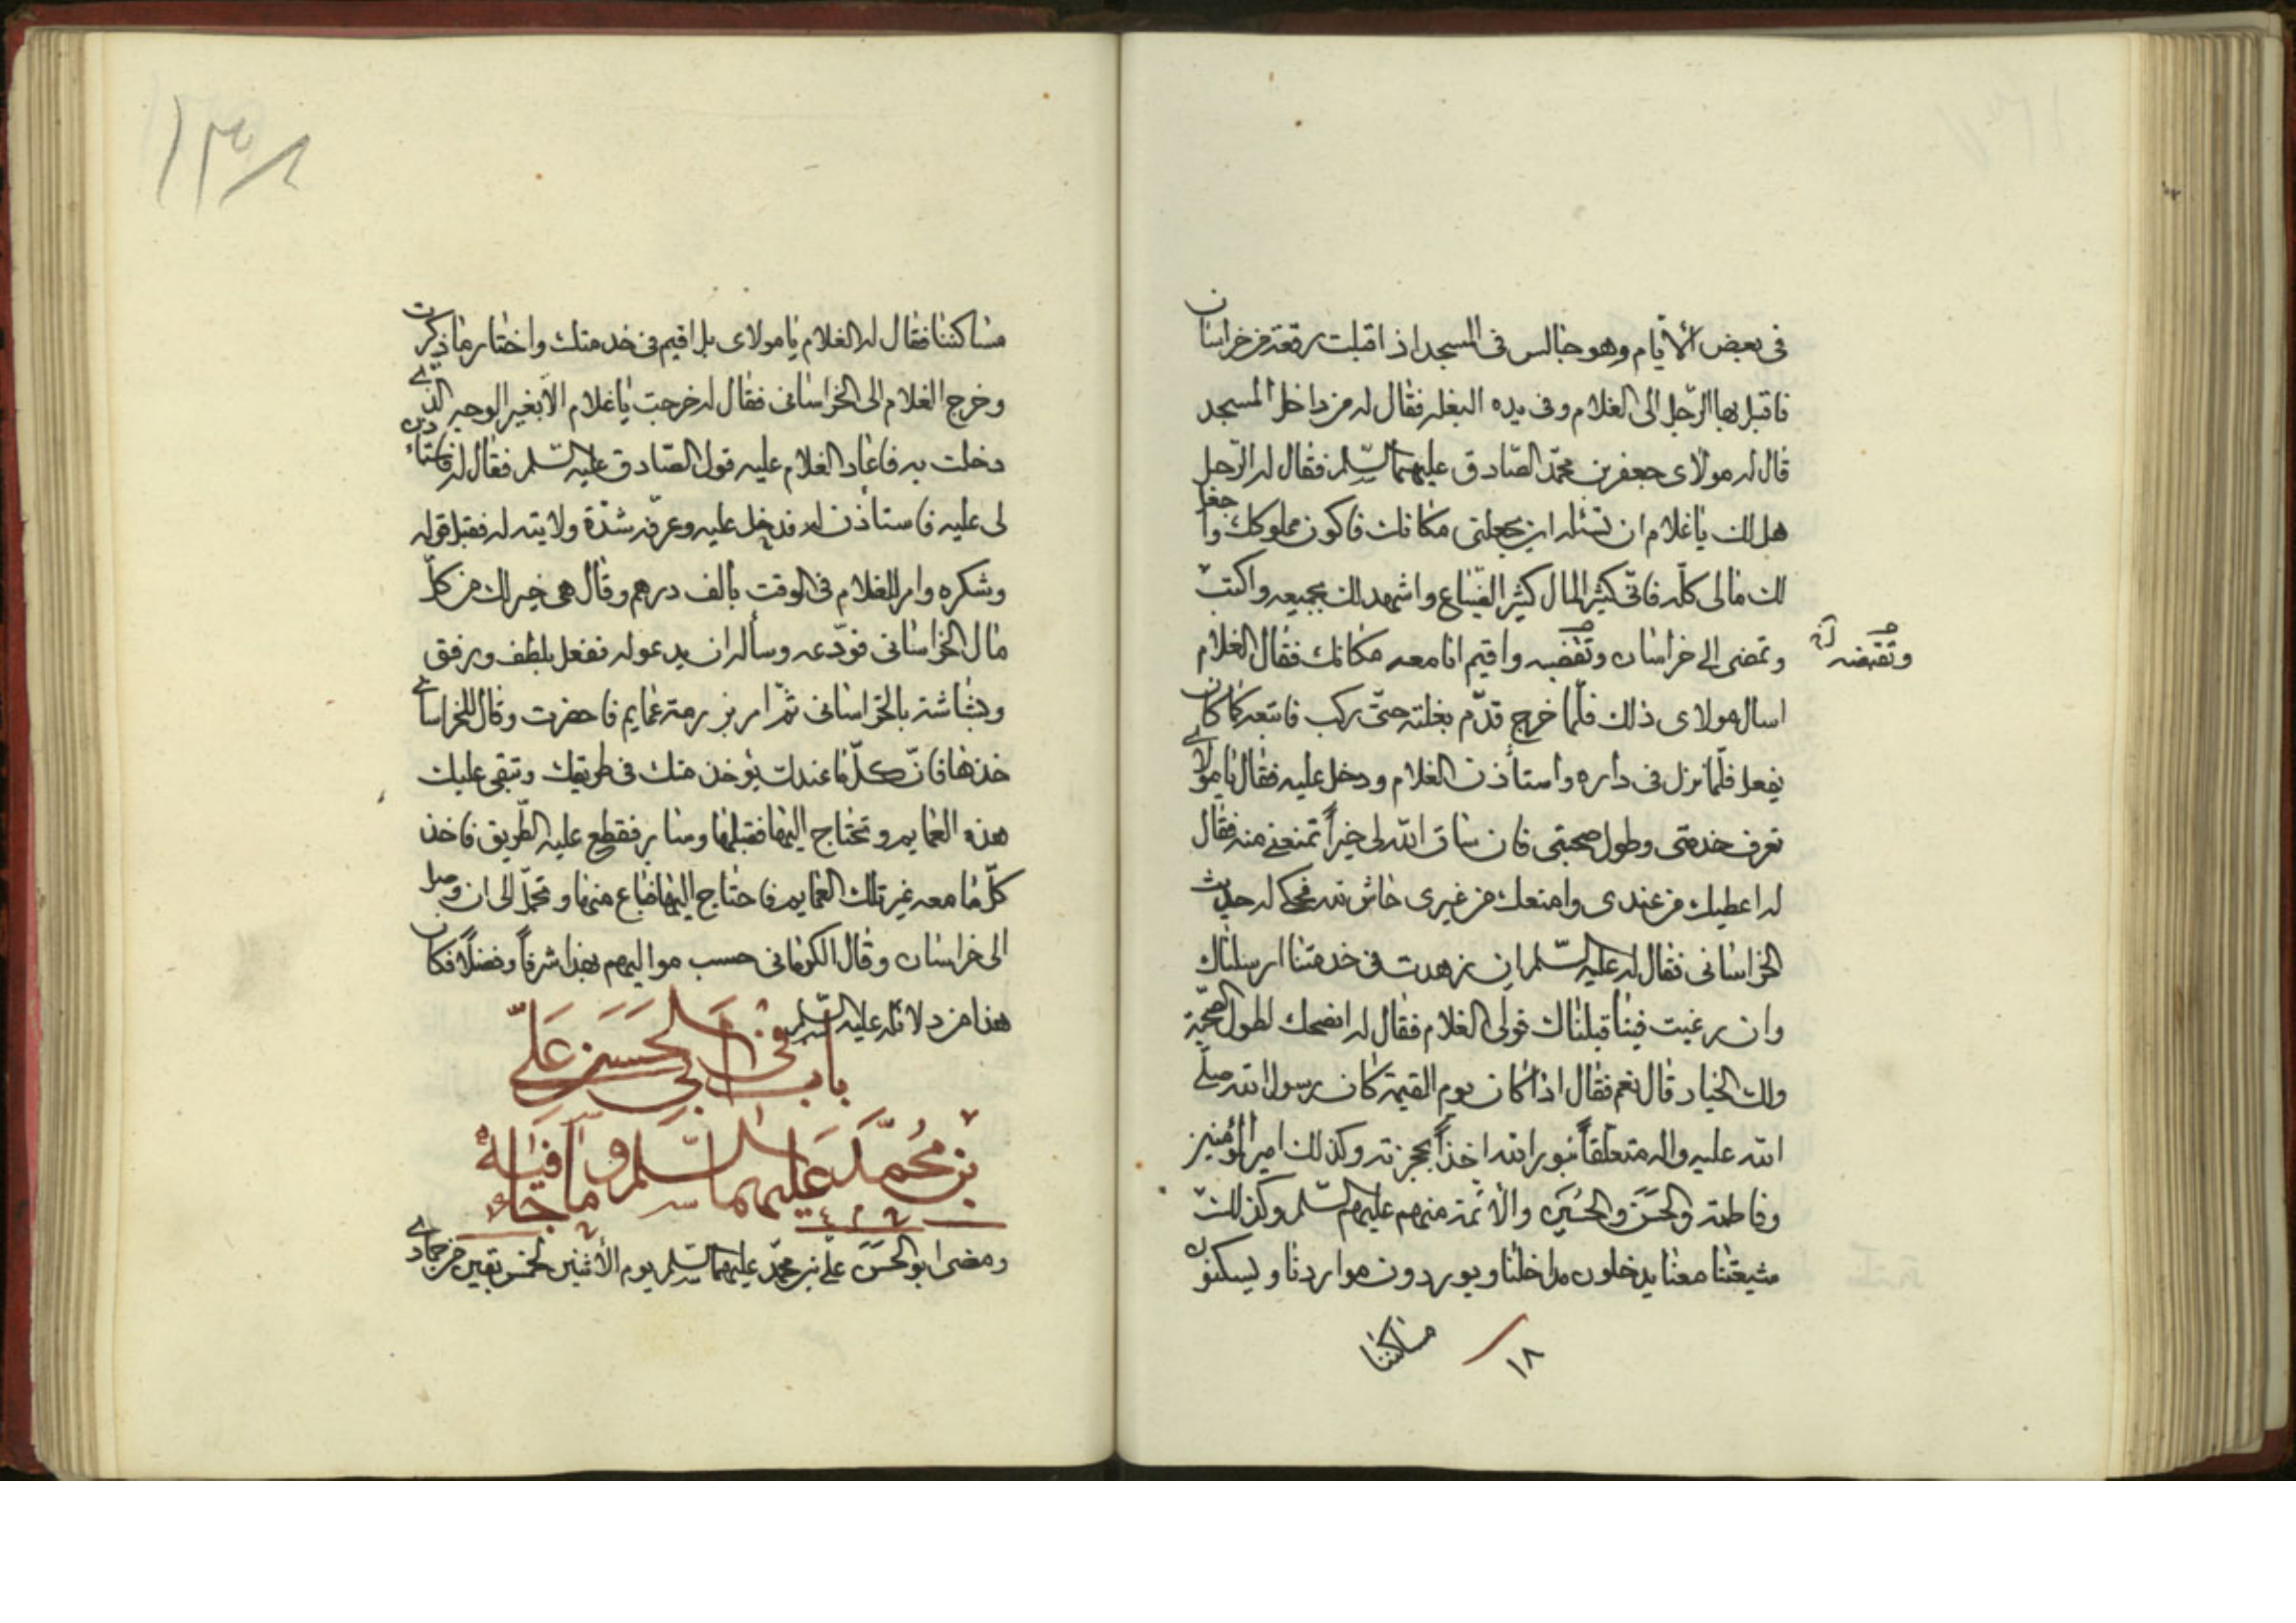 فى بعض الأيّام وهو جالس فى المسجد اذ اقبلت رفقة من خراسان
فاقبل بها الرّجل الى الغلام وفى يده البغلة فقال له من داخل المسجد
قال له مولاى جعفر بن محمّد الصّادق عليهما السّلم فقال له الرّجل
هل لك ياغلام ان تسئله ان يجعلنى مكانك فاكون مملوكك واجعل
لك مالى كلّه فانّى كثير المال كثير الضّياع واشهد لك بجميعه واكتب
وتمضى الى خراسان وتقضيه واقيم انا معه مكانك فقال الغلام
وتقبضه
اسال مولاى ذلك فلمّا خرج قدّم بغلته حتّى ركب فاتبعه كما كان
يفعل فلمّا نزل فى داره واستأذن الغلام ودخل عليه فقال يامولاى
تعرف خدمتى وطول صحبتى فان ساق الله لى خيراً تمنعنى منه فقال
له اعطيك من عندى وامنعك من غيرى حاش لله فحكى له حديث
الخراسانى فقال له عليه السّلم ان زهدت فى خدمتنا ارسلناك
وان رغبت فينا قبلناك فولى الغلام فقال له انصحك لطول الصّحبة
ولك الخيار قال نعم فقال اذا كان يوم القيمة كان رسول الله صلّى
الله عليه واله متعلّقاً بنور الله اخذاً بحجزته وكذلك امير المؤمنين
وفاطمة والحَسَن والحُسَين والأئمّة منهم عليهم السّلم وكذلك
شيعتنا معنا يدخلون مداخلنا ويوردون مواردنا ويسكنون
مساكننا
١٨
١٣٨
مساكننا فقال له الغلام يامولاى بل اقيم فى خدمتك واختار ماذكرت
وخرج الغلام الى الخراسانى فقال له خرجت ياغلام الا بغير الوجه الذى
دخلت به فاعاد الغلام عليه قول الصّادق عليه السّلم فقال له فاستاذن
لى عليه فاستأذن له فدخل عليه وعرّفه شدّة ولايته له فقبل قوله
وشكره وامر للغلام فى الوقت بألف درهم وقال هى خير لك من كلّ
مال الخراسانى فودّعه وسأله ان يدعو له ففعل بلطف ورفق
وبشاشة بالخراسانى ثمّ امر برزمة عمايم فاحضرت وقال للخراسانى
خذها فانّ كلّ ما عندك يؤخذ منك فى طريقك وتبقى عليك
هذه العمايم وتحتاج اليها فقبلها وسار فقطع عليه الطّريق فاخذ
كلّ ما معه غير تلك العمايم فاحتاج اليها فباع منها وتجمّل الى ان وصل
الى خراسان وقال الكرمانى حسب مواليهم بهذا شرفاً وفضلاً فكان
هذا من دلائله عليه السّلم
باب فى ابى الحَسَن عَلىّ
بن مُحَمَّد عليهما السّلم وما جاء فى وفاته
ومضى ابو الحَسَن علىّ بن محمّد عليهما السّلم يوم الأثنين لخمس بقين من جمادى